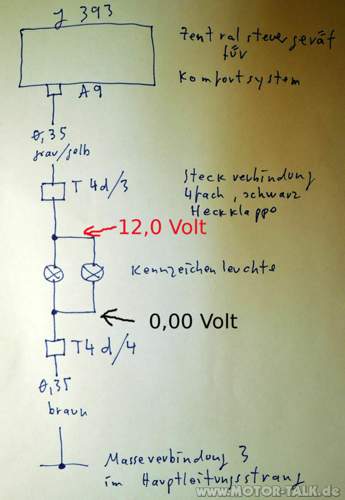 J 393
Zentralsteuergerät
für
Komfortsystem
A9
0,35
grau/gelb
T4d/3
Steckverbindung
4fach, schwarz
Heckklappe
12,0 Volt
Kennzeichenleuchte
0,00 Volt
T4d/4
0,35
braun
Masseverbindung 3
im Hauptleitungsstrang
www.MOTOR-TALK.de